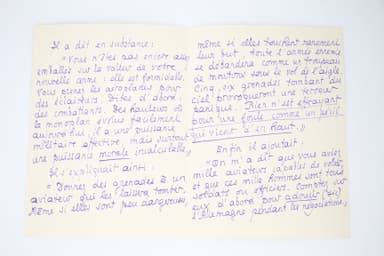 Il a dit en substance :
"Vous n'êtes pas encore assez
emballés sur la valeur de votre
nouvelle arme : elle est formidable.
Vous prenez les aéroplanes pour
des éclaireurs. Dites d'abord :
des combattants. Des hauteurs où
le monoplan évolue facilement
aujourd'hui, il a une puissance
militaire effective, mais surtout
une puissance morale incalculable,,
Il s'expliquait ainsi :
"Donnez des grenades à un
aviateur qui les laissera tomber,
Même si elles sont peu dangereuses,
même si elles touchent rarement
leur but, toute l'armée ennemie
se débandera comme un troupeau
de moutons sous le vol de l'aigle.
Cinq, six grenades tombant du
ciel provoqueront une terreur
panique. Rien n'est effrayant
pour une foule comme un péril
qui vient d'en haut.,,
Enfin il ajoutait :
"On m'a dit que vous aviez
mille aviateurs capables de voler,
et que ces mille hommes sont tous
soldats ou officiers. Comptez sur
eux d'abord pour adoucir (sic)
l'Allemagne pendant les négociations,,